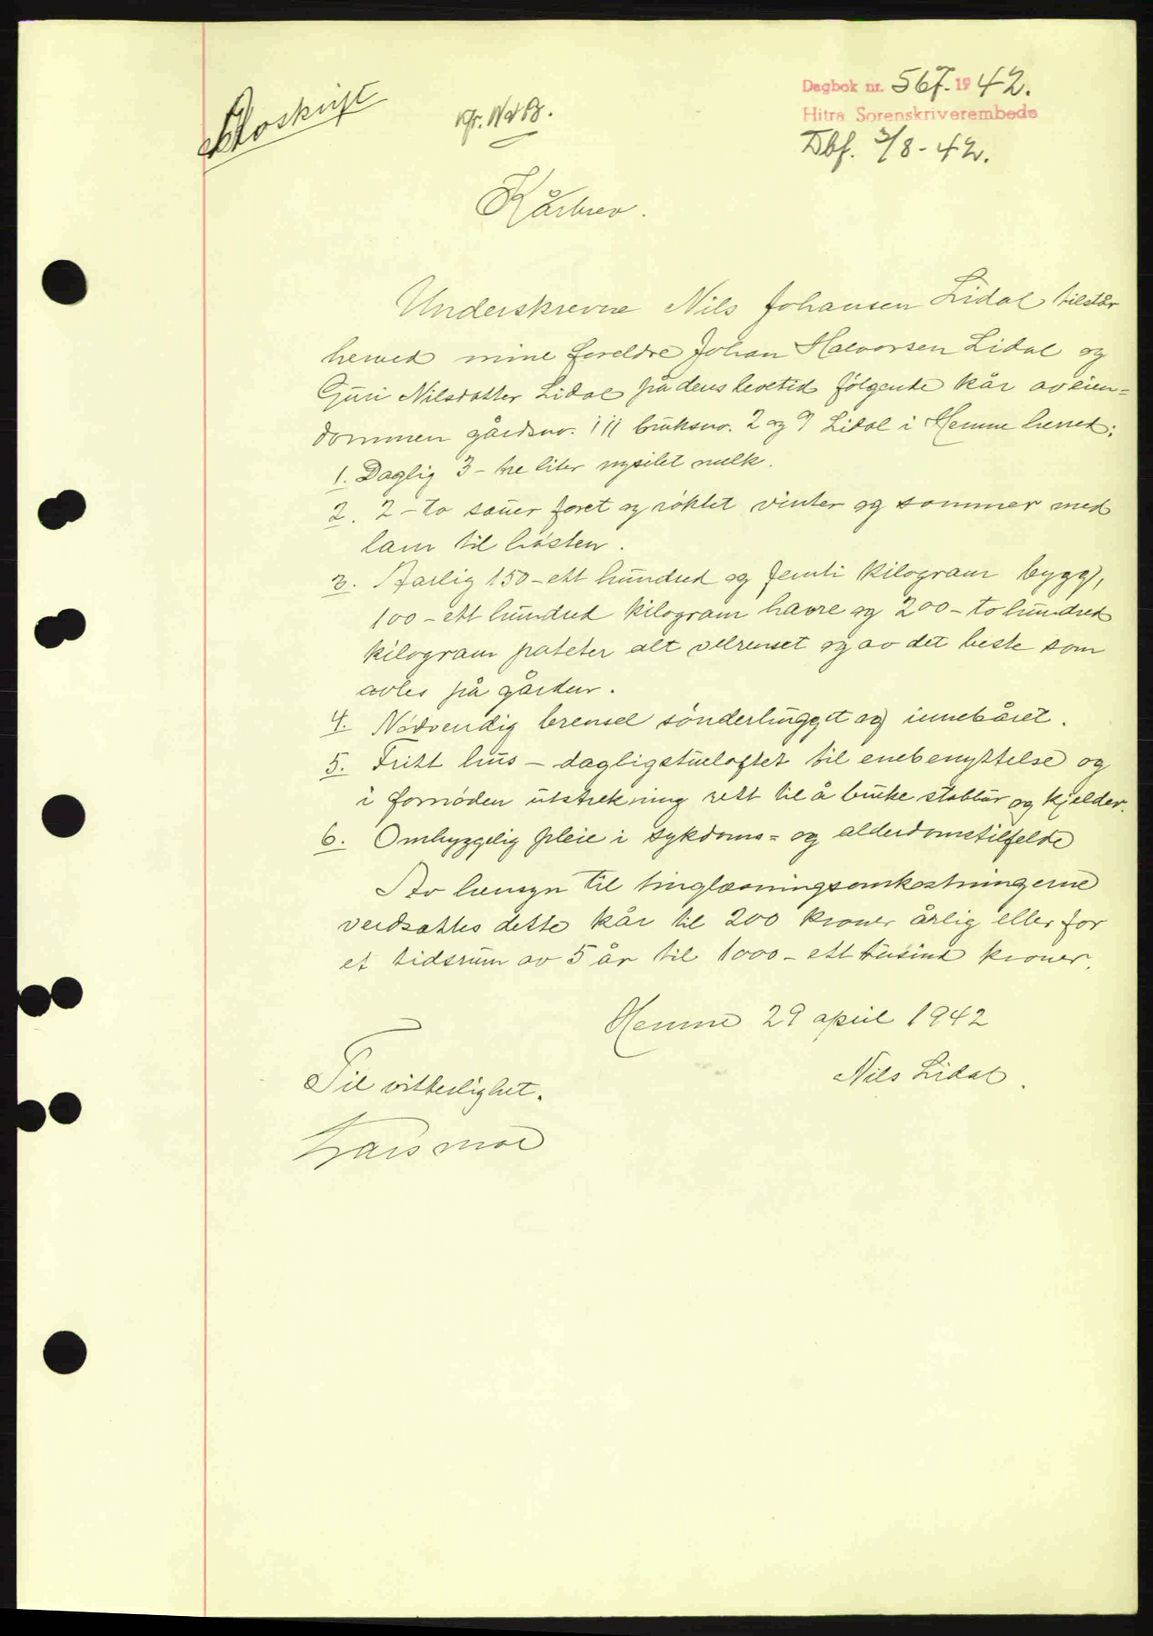 Dagbok nr. 567. 1942.
Avskrift
Hitra Sorenskriverembede
Dbf. 3/8-42.
Kårbrev.
Underskrevne Nils Johansen Lidal tilstår
herved mine foreldre Johan Halvorsen Lidal og
Guri Nilsdatter Lidal på deres levetid følgende kår av eien=
dommen gårdsnr. 111 bruksnr. 2 og 9 Lidal i Hemne herred:
1. Daglig 3 - tre liter nysilet melk.
2. 2 - to sauer foret og røktet vinter og sommer med
lam til høsten.
3. Aarlig 150 - ett hundred og femti kilogram bygg,
100 - ett hundred kilogram havre og 200 - to hundred
kilogram poteter alt velrenset og av det beste som
avles på gården.
4. Nødvendig brensel sønderhugget og innebåret.
5. Fritt hus - dagligstueloftet til enebenyttelse og
i fornøden utstrekning rett til å bruke stabbur og kjelder.
6. Omhyggelig pleie i sykdoms= og alderdomstilfelde
Av hensyn til tinglæsningsomkostningerne
verdsattes dette kår til 200 kroner årlig eller for
et tidsrum av 5 år til 1000 - ett tusind kroner.
Hemne 29 april 1942
Nils Lidal.
Til vitterlighet.
Lars Moe